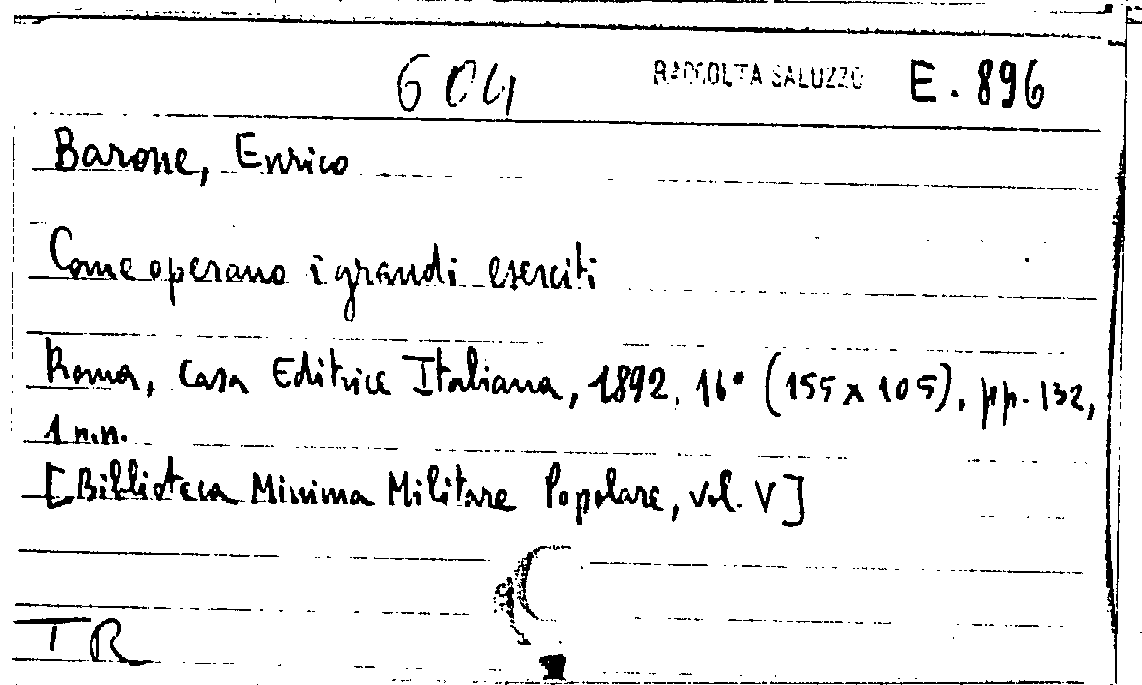 604 RACCOLTA SALUZZO E. 896
Barone, Enrico
Come operano i grandi eserciti
Roma, Casa Editrice Italiana, 1892, 16° (155 x 105), pp. 132,
1 n.n.
[Biblioteca Minima Militare Popolare, vol. V]
TR